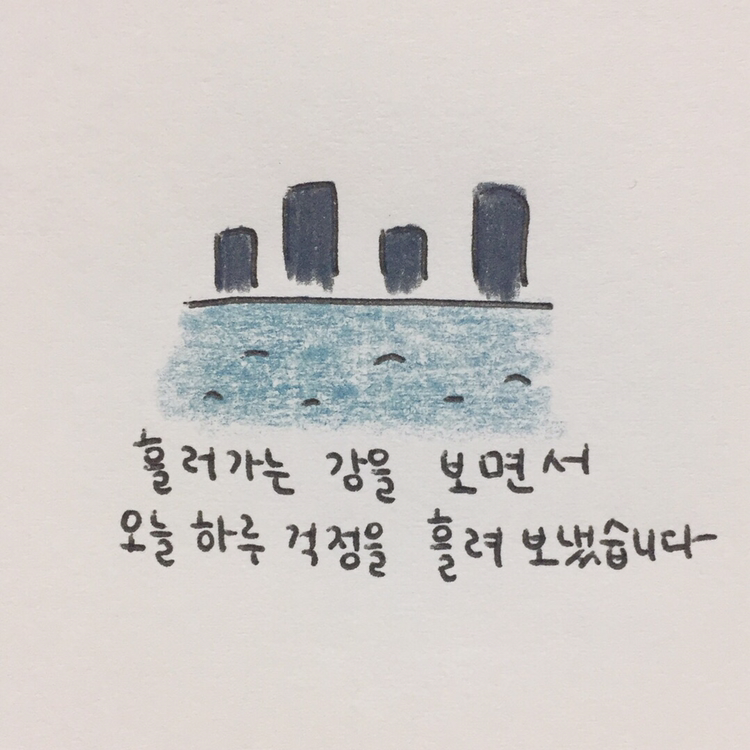 흘러가는 강을 보면서
오늘 하루 걱정을 흘려 보냈습니다